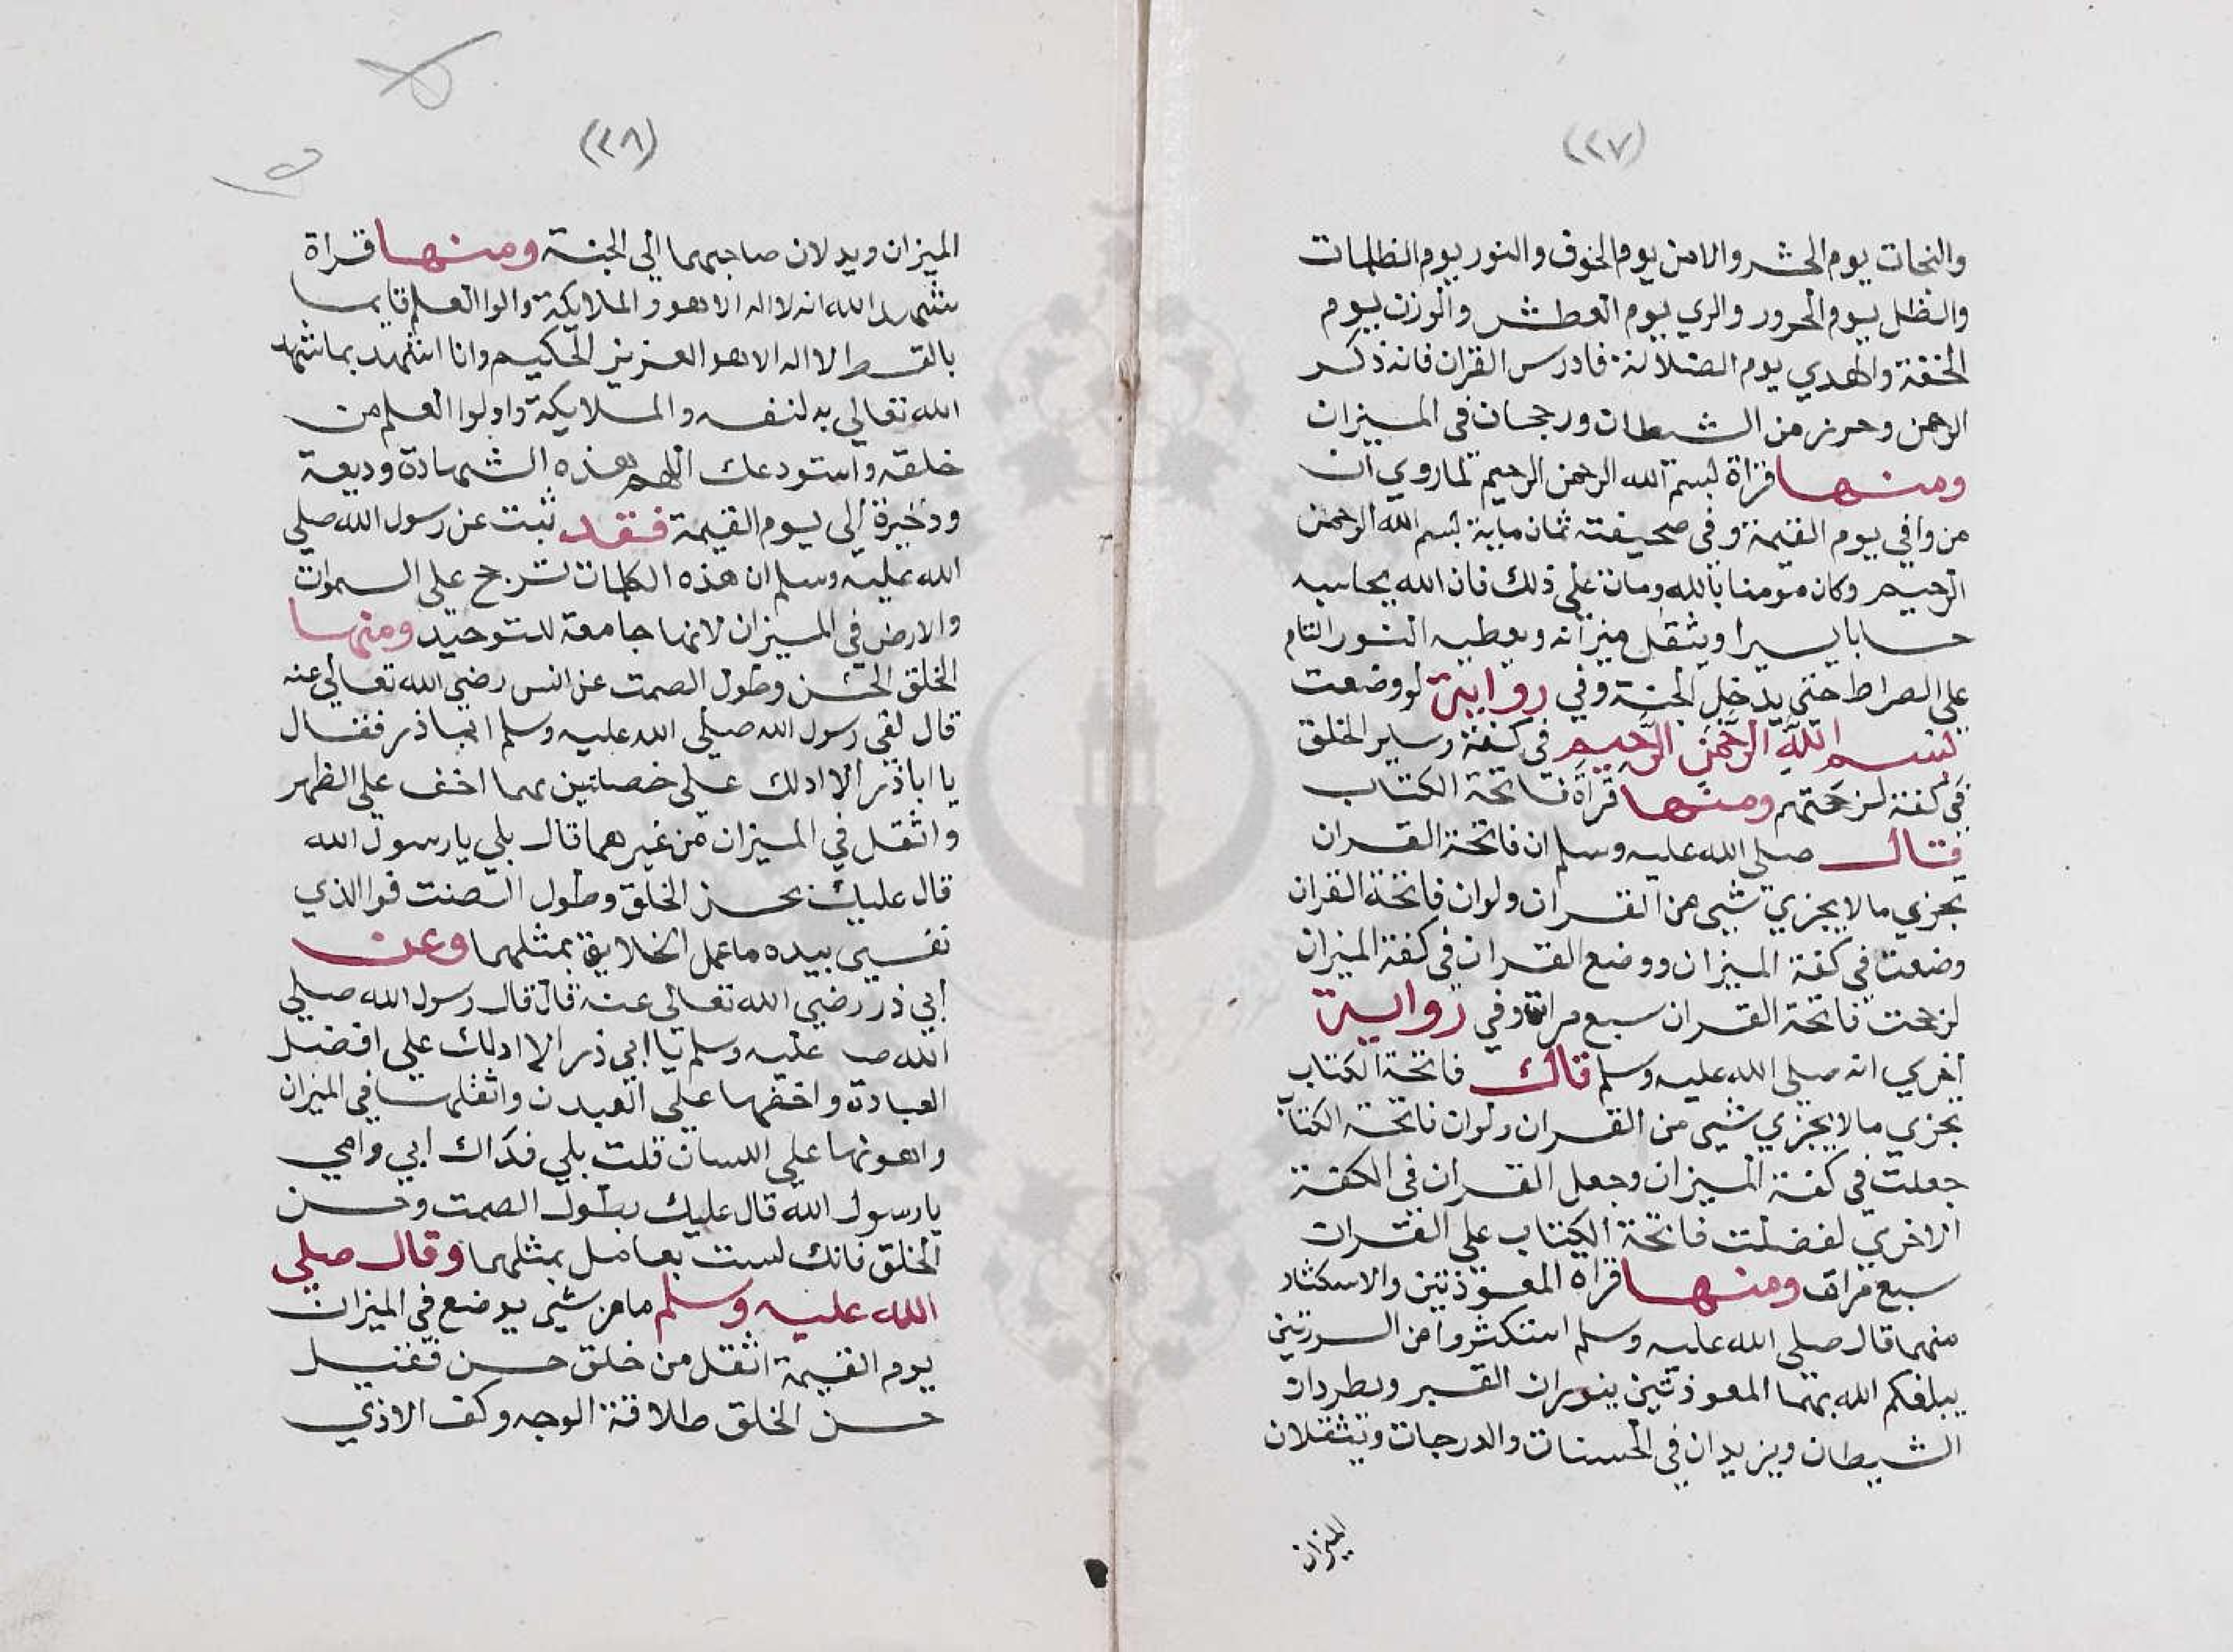 (٢٧)
والنجات يوم الحشر والامن يوم الخوف والنور يوم الظلمات
والظل يوم الحرور والري يوم العطش والوزن يوم
الخفة والهدي يوم الضلالة فادرس القران فانه ذكر
الرحمن وحرز من الشيطان ورجحان في الميزان
ومنها قراة بسم الله الرحمن الرحيم لما روي ان
من وافي يوم القيمة وفي صحيفته ثمان ماية بسم الله الرحمن
الرحيم وكان مومنا بالله ومات علي ذلك فان الله يحاسبه
حسابا يسيرا ويثقل ميزانه ويعطيه النور التام
علي الصراط حتي يدخل الجنة وفي رواية لو وضعت
بسم الله الرحمن الرحيم في كفة وساير الخلق
في كفة لرجحتهم ومنها قراة فاتحة الكتاب
قال صلي الله عليه وسلم ان فاتحة القران
تجزي ما لا يجزي شيى من القران ولو ان فاتحة القران
وضعت في كفة الميزان ووضع القران في كفة الميزان
لرجحت فاتحة القران سبع مرات وفي رواية
اخري انه صلي الله عليه وسلم قال فاتحة الكتاب
تجزي ما لا يجزي شيى من القران ولو ان فاتحة الكتاب
جعلت في كفة الميزان وجعل القران في الكفة
الاخري لفضلت فاتحة الكتاب علي القران
سبع مرات ومنها قراة المعوذتين والاستكثار
منهما قال صلي الله عليه وسلم استكثروا من السورتين
يبلغكم الله بهما المعوذتين ينوران القبر ويطردان
الشيطان ويزيدان في الحسنات والدرجات ويثقلان
الميزان
(٢٨)
الميزان ويدلان صاحبهما الي الجنة ومنها قراة
شهد الله انه لا اله الا هو والملايكة والوا العلم قايما
بالقسط لا اله الا هو العزيز الحكيم وانا اشهد بما شهد
الله تعالي به لنفسه والملايكة واولوا العلم من
خلقه واستودعك اللهم هذه الشهادة وديعة
وذخيرة الي يوم القيمة فقد ثبت عن رسول الله صلي
الله عليه وسلم ان هذه الكلمات ترجح علي السموات
والارض في الميزان لانها جامعة للتوحيد ومنها
الخلق الحسن وطول الصمت عن انس رضي الله تعالي عنه
قال لقي رسول الله صلي الله عليه وسلم ابا ذر فقال
يا ابا ذر الا ادلك علي خصلتين هما اخف علي الظهر
واثقل في الميزان من غيرهما قال بلي يا رسول الله
قال عليك بحسن الخلق وطول الصمت فوالذي
نفسي بيده ما عمل الخلايق بمثلهما وعن
ابي ذر رضي الله تعالي عنه قال قال رسول الله صلي
الله صـ عليه وسلم يا ابي ذر الا ادلك علي افضل
العبادة واخفها علي البدن واثقلها في الميزان
واهونها علي اللسان قلت بلي فداك ابي وامي
يا رسول الله قال عليك بطول الصمت وحسن
الخلق فانك لست بعامل بمثلهما وقال صلي
الله عليه وسلم ما من شيى يوضع في الميزان
يوم القيمة اثقل من خلق حسن فقيل
حسن الخلق طلاقة الوجه وكف الاذي